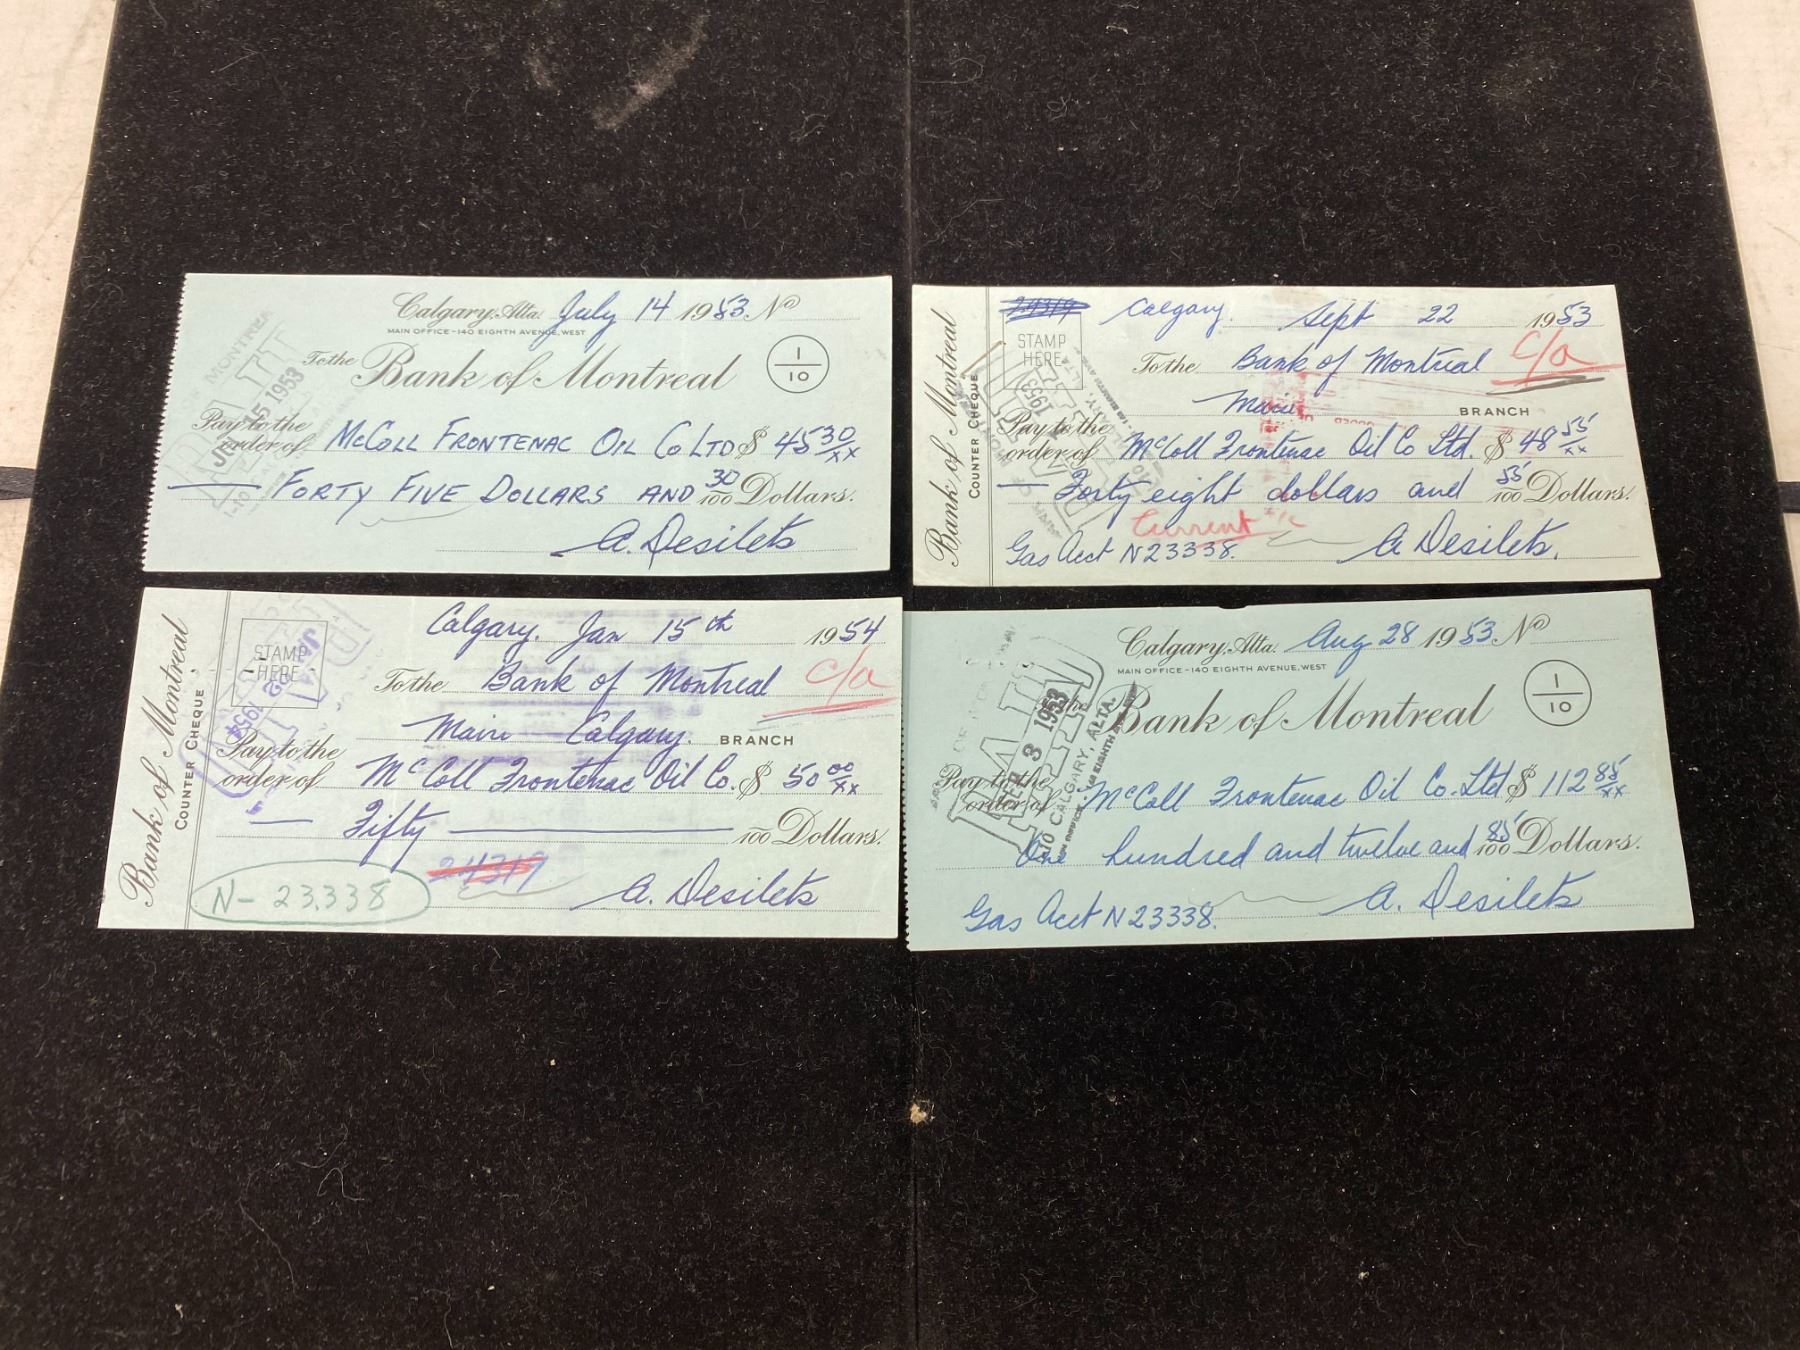 Calgary, Alta. July 14 1953 No
MAIN OFFICE-140 EIGHTH AVENUE, WEST
To the Bank of Montreal
1
10
15 1953
Pay to the
order of McColl Frontenac Oil Co Ltd $ 45 30/xx
Forty Five Dollars and 30/100 Dollars.
A. Desilets
Bank of Montreal
COUNTER CHEQUE
24319
STAMP
HERE
Calgary. Sept 22 1953
To the Bank of Montreal
c/a
Main BRANCH
1953
Pay to the
order of McColl Frontenac Oil Co Ltd. $ 48 55/xx
Forty eight dollars and 55/100 Dollars.
Current a/c
Gas Acct N 23338.
A Desilets.
Bank of Montreal
COUNTER CHEQUE
STAMP
HERE
Calgary. Jan 15th 1954
To the Bank of Montreal
c/a
Main Calgary. BRANCH
1954
Pay to the
order of McColl Frontenac Oil Co. $ 50 00/xx
Fifty 100 Dollars.
24319
N- 23.338
A. Desilets
Calgary, Alta. Aug 28 1953 No
MAIN OFFICE-140 EIGHTH AVENUE, WEST
To the Bank of Montreal
1
10
PAID
3 1953
CALGARY, ALTA.
Pay to the
order of McColl Frontenac Oil Co. Ltd $ 112 85/xx
One hundred and twelve and 85/100 Dollars.
Gas Acct N 23338.
A. Desilets